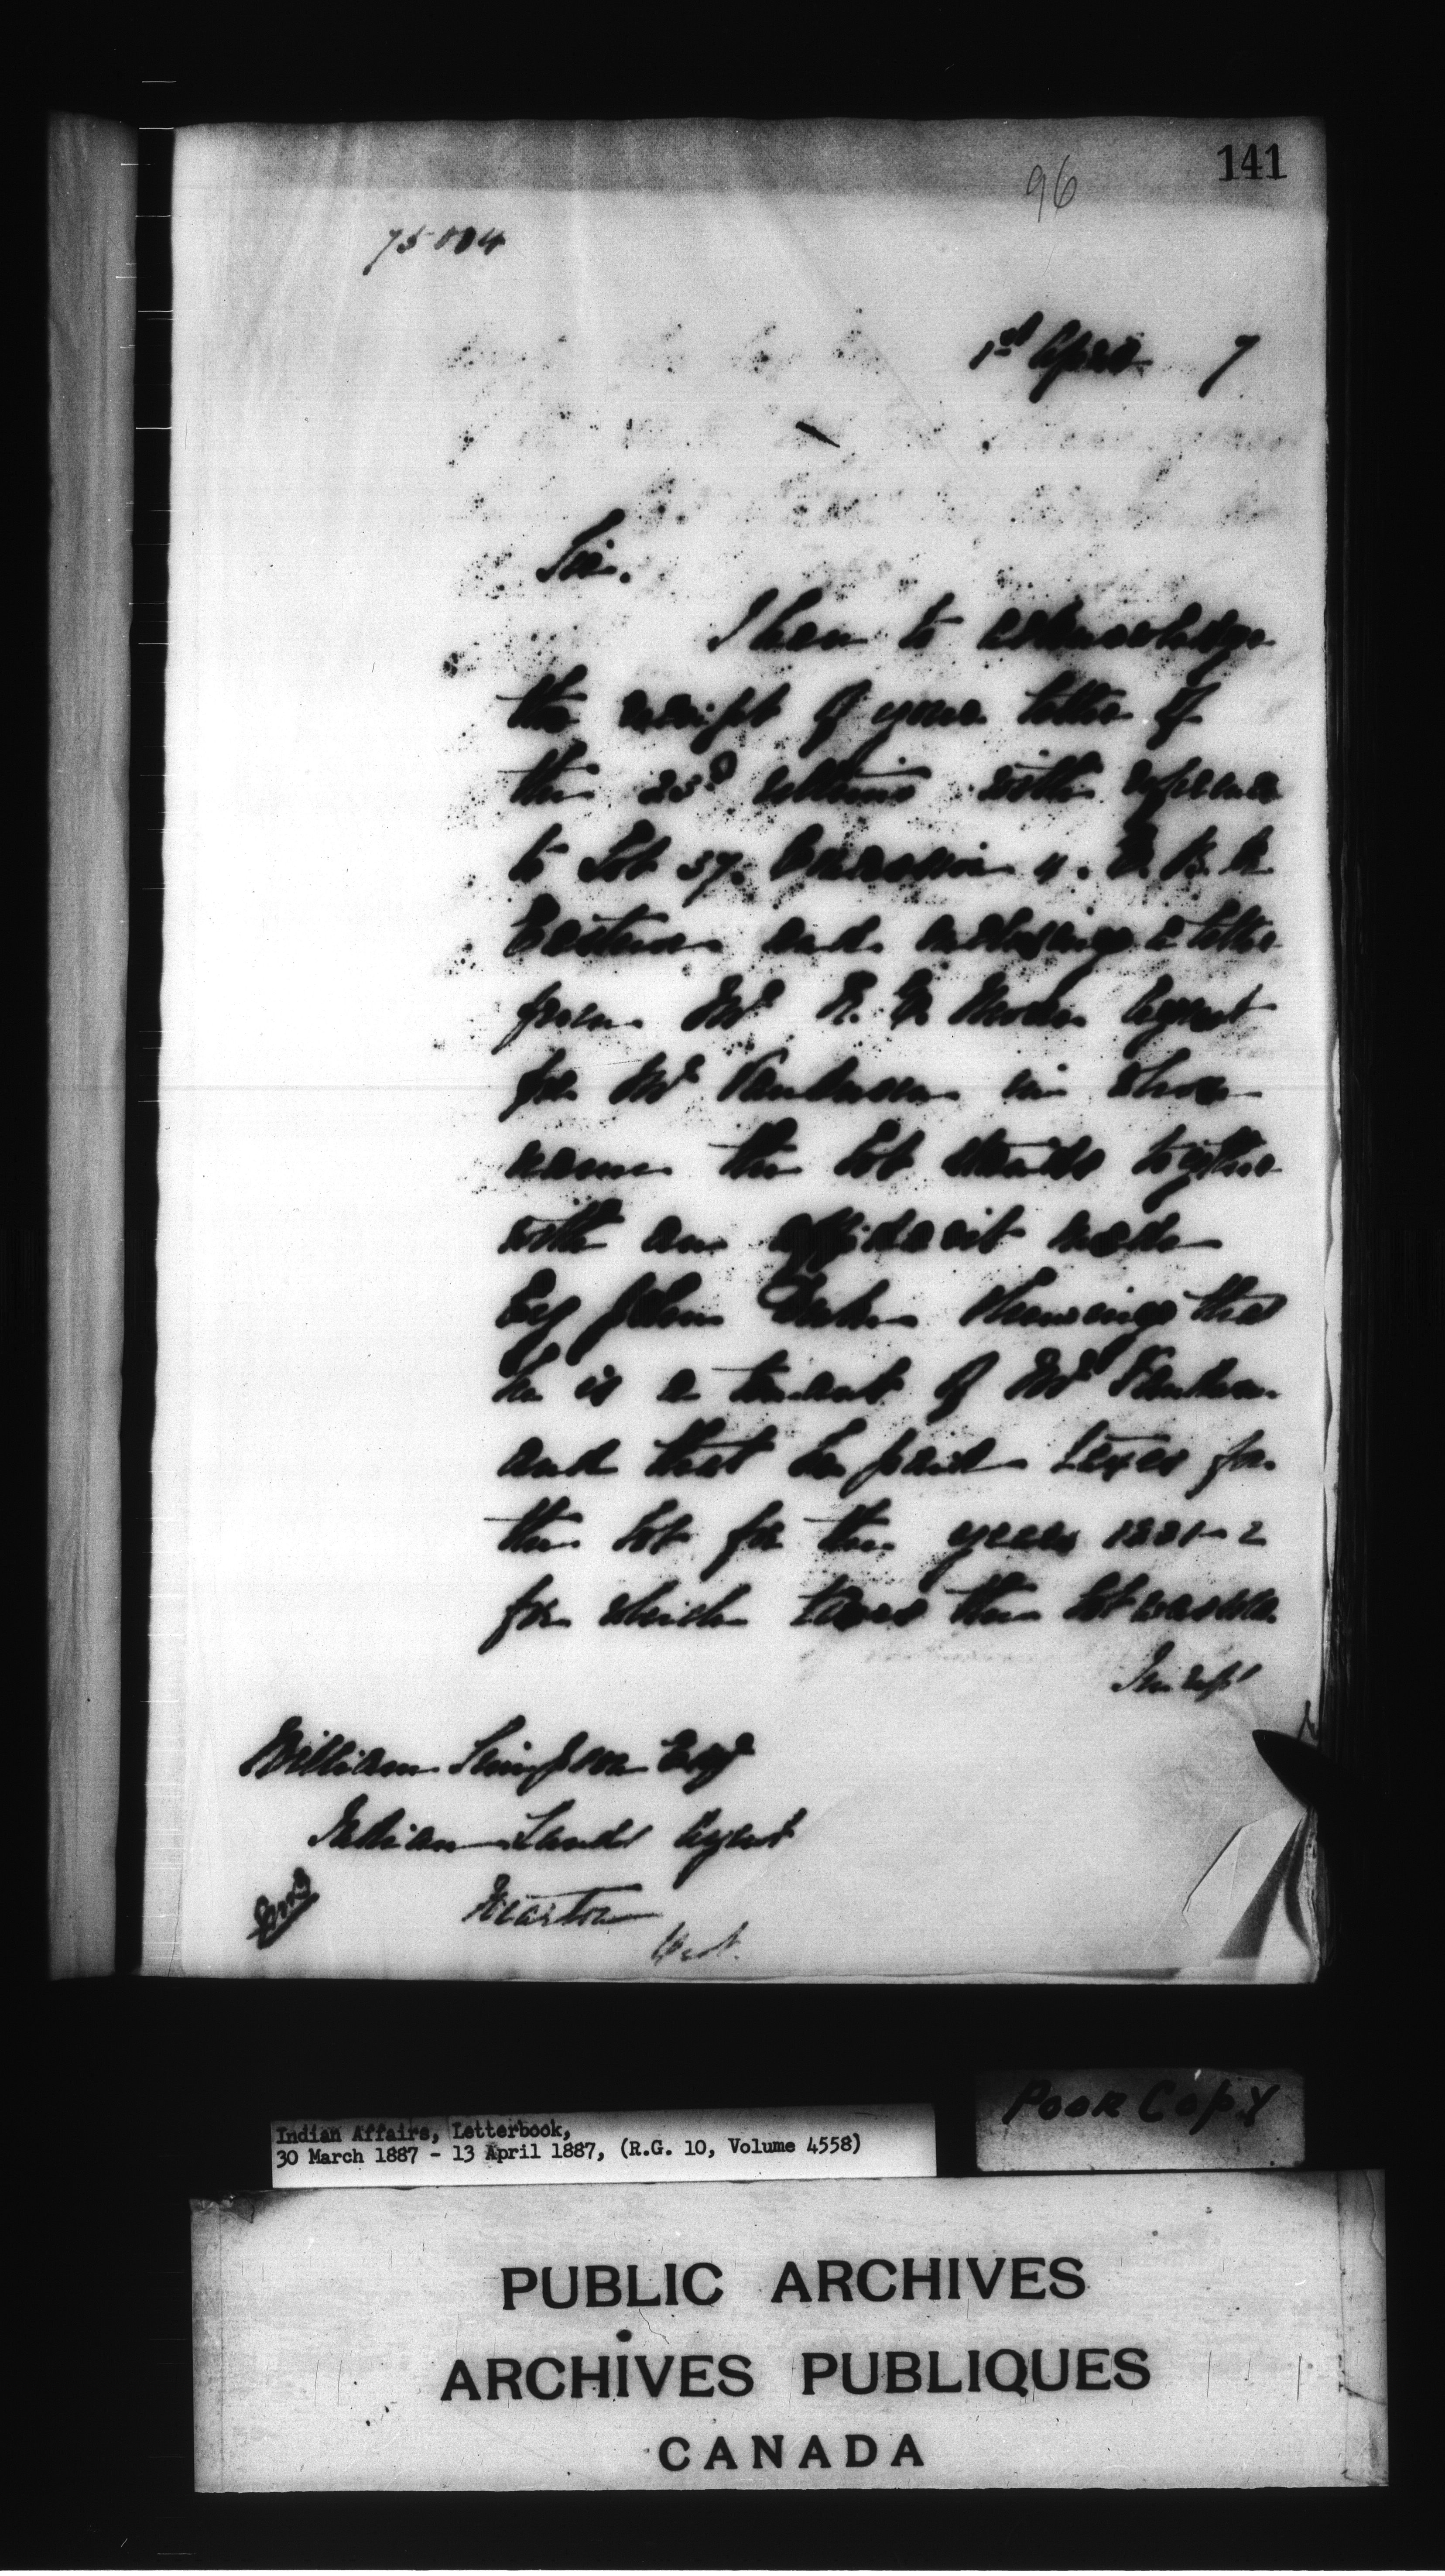 141
96
75004
1st April 7
Sir.
I have to acknowledge
the receipt of your letter of
the 23d ultimo with reference
to Lot 37. Concession 4. E. B. R.
Eastnor and enclosing a letter
from Mr R. Agent
for Mr in whose
name the lot stands together
with an affidavit made
by John shewing that
he is a tenant of Mr
and that he paid taxes for
the lot for the years 1881-2
for which taxes the lot was
William Simpson Esqr
Indian Lands Agent
Wiarton
Ont.
POOR COPY
Indian Affairs, Letterbook,
30 March 1887 - 13 April 1887, (R.G. 10, Volume 4558)
PUBLIC ARCHIVES
ARCHIVES PUBLIQUES
CANADA